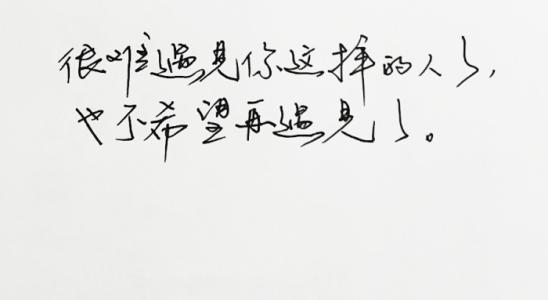 很难遇见你这样的人了，
也不希望再遇见了。